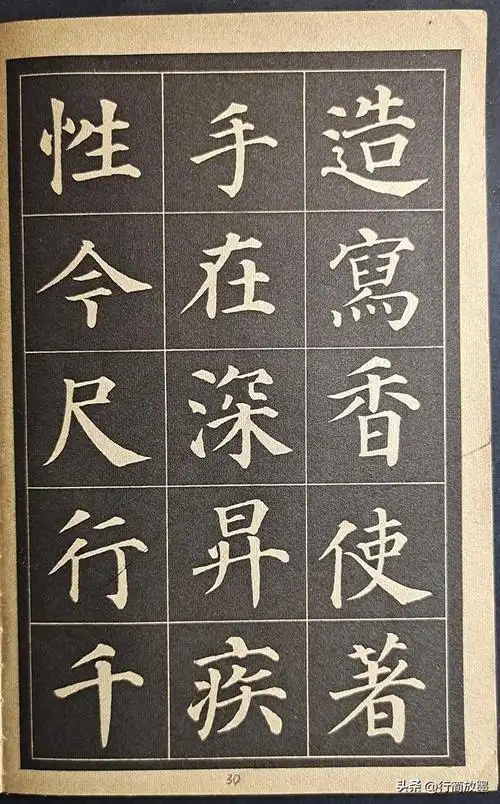 造寫香使著
手在深昇疾
性今尺行千
30
头条 @行商放墨